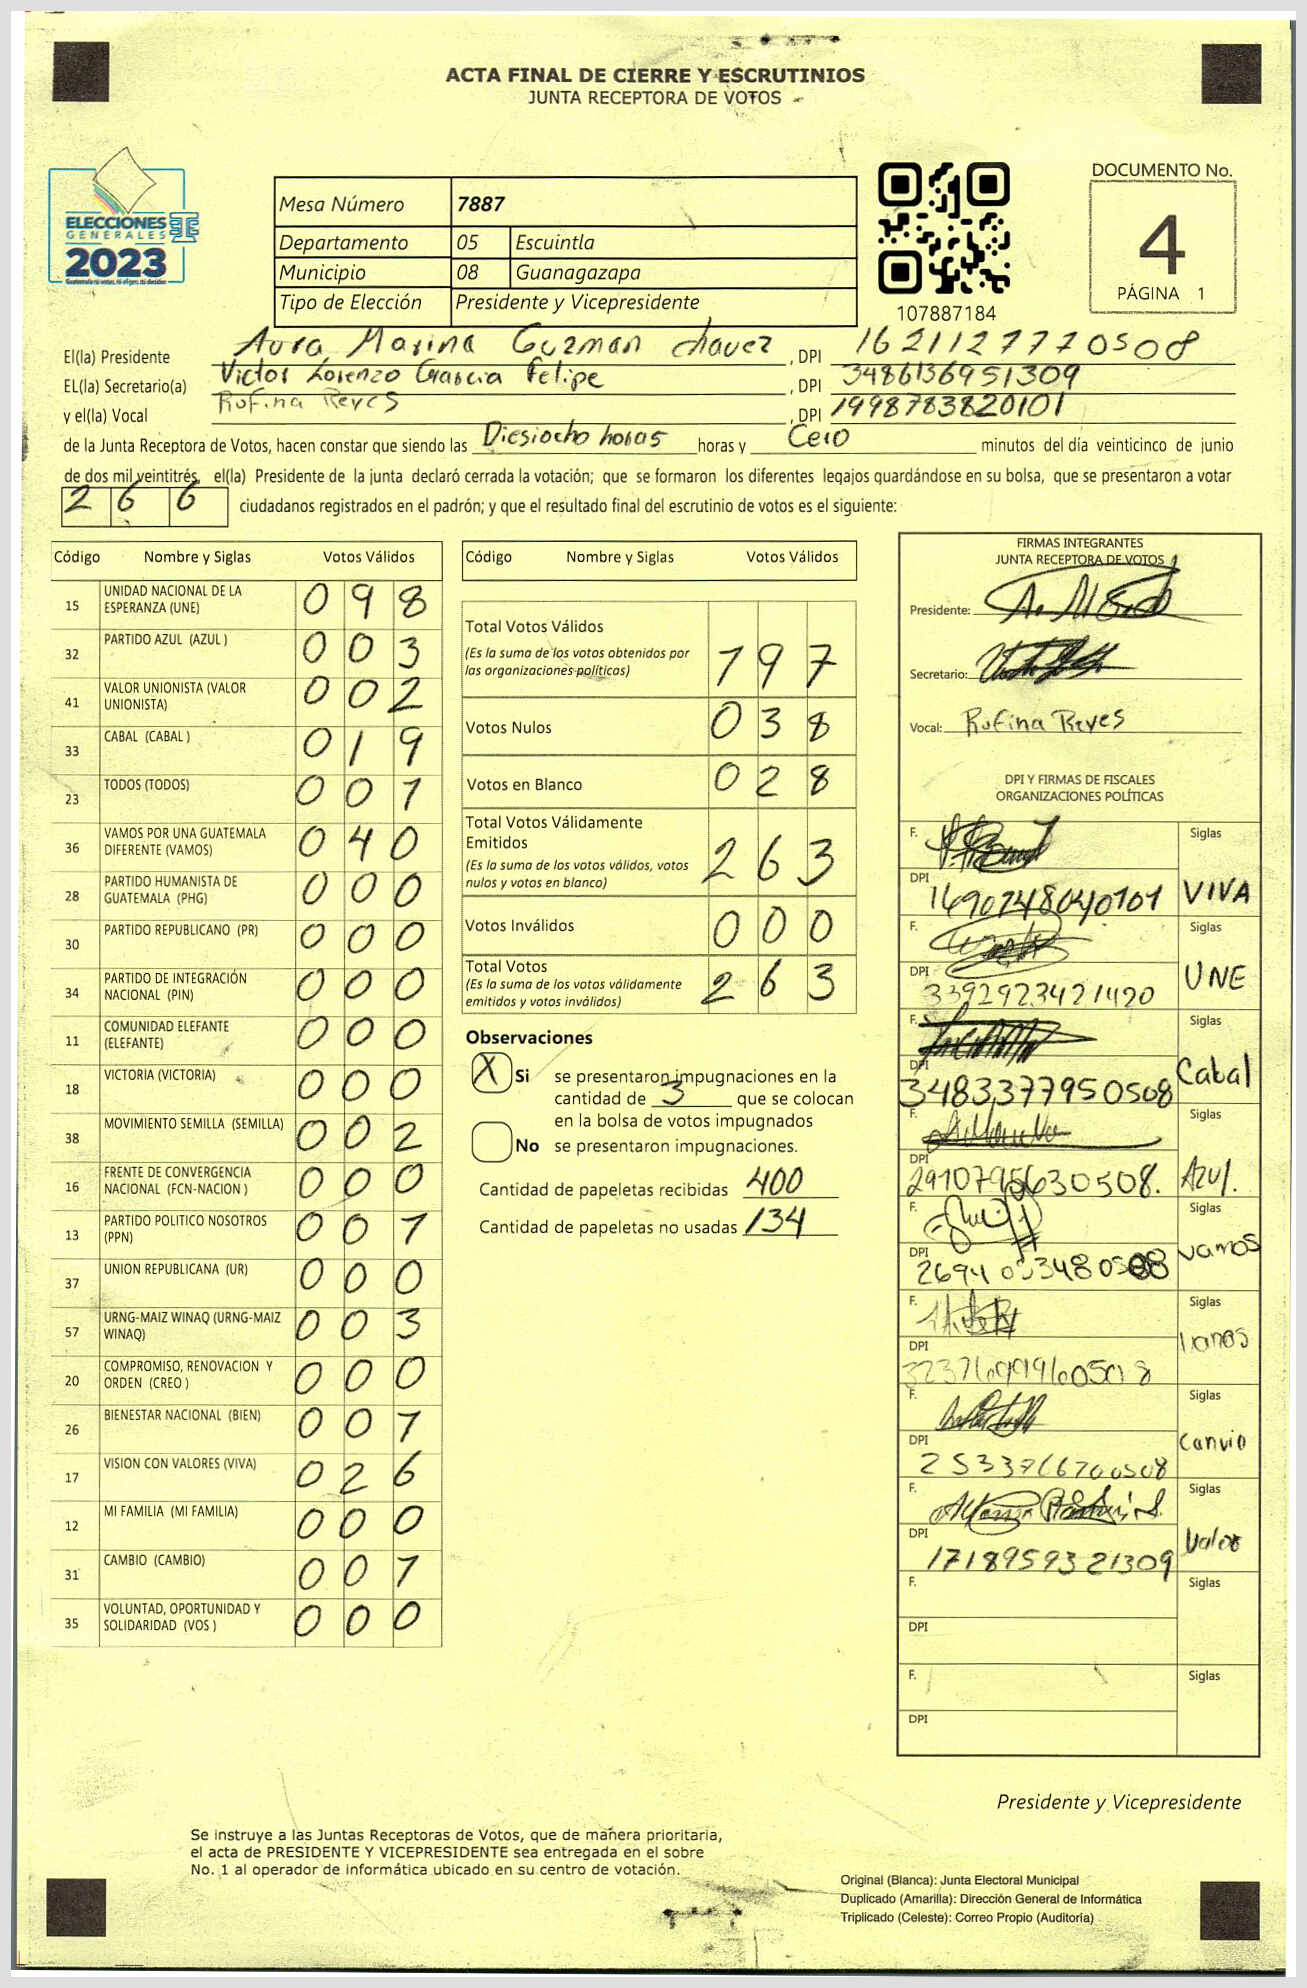 ACTA FINAL DE CIERRE Y ESCRUTINIOS
JUNTA RECEPTORA DE VOTOS
ELECCIONES
GENERALES
2023
Mesa Número 7887
Departamento 05 Escuintla
Municipio 08 Guanagazapa
Tipo de Elección Presidente y Vicepresidente
107887184
DOCUMENTO No.
4
PÁGINA 1
El(la) Presidente Aura Marina Guzman chavez , DPI 1621127770508
EL(la) Secretario(a) Victor Lorenzo Garcia Felipe , DPI 3486136951309
y el(la) Vocal Rufina Reyes , DPI 1998783820101
de la Junta Receptora de Votos, hacen constar que siendo las Diesiocho horas horas y Cero minutos del día veinticinco de junio
de dos mil veintitrés, el(la) Presidente de la junta declaró cerrada la votación; que se formaron los diferentes legajos guardándose en su bolsa, que se presentaron a votar
266 ciudadanos registrados en el padrón; y que el resultado final del escrutinio de votos es el siguiente:
Código Nombre y Siglas Votos Válidos
15 UNIDAD NACIONAL DE LA ESPERANZA (UNE) 098
32 PARTIDO AZUL (AZUL ) 003
41 VALOR UNIONISTA (VALOR UNIONISTA) 002
33 CABAL (CABAL ) 019
23 TODOS (TODOS) 001
36 VAMOS POR UNA GUATEMALA DIFERENTE (VAMOS) 040
28 PARTIDO HUMANISTA DE GUATEMALA (PHG) 000
30 PARTIDO REPUBLICANO (PR) 000
34 PARTIDO DE INTEGRACIÓN NACIONAL (PIN) 000
11 COMUNIDAD ELEFANTE (ELEFANTE) 000
18 VICTORIA (VICTORIA) 000
38 MOVIMIENTO SEMILLA (SEMILLA) 002
16 FRENTE DE CONVERGENCIA NACIONAL (FCN-NACION ) 000
13 PARTIDO POLITICO NOSOTROS (PPN) 001
37 UNION REPUBLICANA (UR) 000
57 URNG-MAIZ WINAQ (URNG-MAIZ WINAQ) 003
20 COMPROMISO, RENOVACION Y ORDEN (CREO ) 000
26 BIENESTAR NACIONAL (BIEN) 001
17 VISION CON VALORES (VIVA) 026
12 MI FAMILIA (MI FAMILIA) 000
31 CAMBIO (CAMBIO) 001
35 VOLUNTAD, OPORTUNIDAD Y SOLIDARIDAD (VOS ) 000
Código Nombre y Siglas Votos Válidos
Total Votos Válidos 197
(Es la suma de los votos obtenidos por
las organizaciones políticas)
Votos Nulos 038
Votos en Blanco 028
Total Votos Válidamente
Emitidos 263
(Es la suma de los votos válidos, votos
nulos y votos en blanco)
Votos Inválidos 000
Total Votos 263
(Es la suma de los votos válidamente
emitidos y votos inválidos)
Observaciones
X Si se presentaron impugnaciones en la
cantidad de 3 que se colocan
en la bolsa de votos impugnados
No se presentaron impugnaciones.
Cantidad de papeletas recibidas 400
Cantidad de papeletas no usadas 134
FIRMAS INTEGRANTES
JUNTA RECEPTORA DE VOTOS
Presidente:
Secretario:
Vocal: Rufina Reyes
DPI Y FIRMAS DE FISCALES
ORGANIZACIONES POLÍTICAS
F. Siglas
DPI 1690248040101 VIVA
F. Siglas
DPI 3392923421420 UNE
F. Siglas
DPI 3483377950508 Cabal
F. Siglas
DPI Azul.
F. Siglas
DPI vamos
F. Siglas
DPI
F. Siglas
DPI canvio
F. Siglas
DPI 1718959321309 Valor
F. Siglas
DPI
F. Siglas
DPI
Presidente y Vicepresidente
Se instruye a las Juntas Receptoras de Votos, que de mañera prioritaria,
el acta de PRESIDENTE Y VICEPRESIDENTE sea entregada en el sobre
No. 1 al operador de informática ubicado en su centro de votación.
Original (Blanca): Junta Electoral Municipal
Duplicado (Amarilla): Dirección General de Informática
Triplicado (Celeste): Correo Propio (Auditoría)